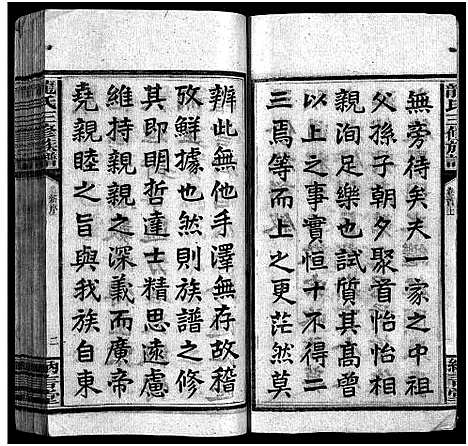 龍氏三修族譜
無旁待矣夫一家之中祖
父孫子朝夕聚音怡怡相
親洵足樂也試質其高曾
以上之事實恒十不得二
三焉等而上之更茫然莫
辨此無他手澤無存故稽
攷鮮據也然則族譜之修
其即明哲達士精思遠慮
維持親親之深義而廣帝
堯親睦之旨與我族自東
龍氏三修族譜
二